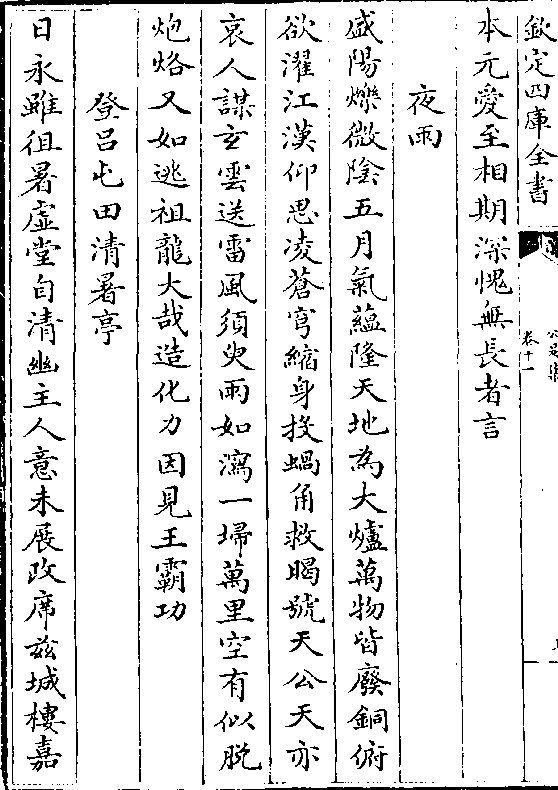 欽定四庫全書
卷十一
本元愛至相期深愧無長者言
夜雨
盛陽爍微陰五月氣蘊隆天地為大爐萬物皆廢銅俯
欲濯江漢仰思凌蒼穹縮身投蝸角救暍號天公天亦
哀人謀玄雲送雷風須臾雨如瀉一埽萬里空有似脫
炮烙又如逃祖龍大哉造化力因見王霸功
登呂屯田清暑亭
日永雖徂暑虛堂自清幽主人意未展改席茲城樓嘉